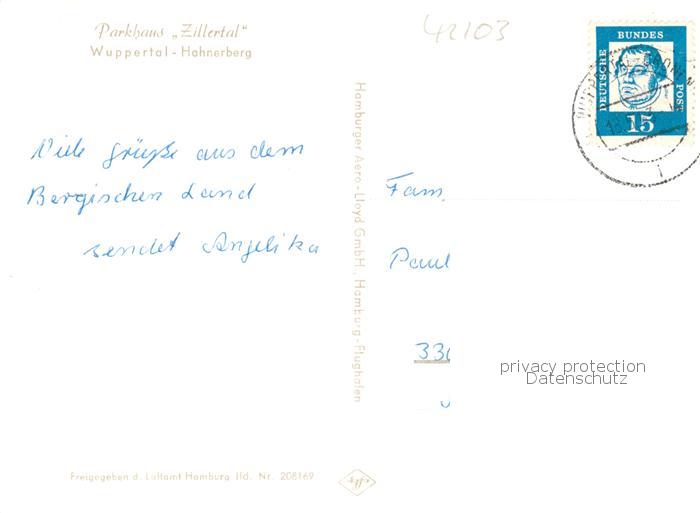 Parkhaus „Zillertal"
Wuppertal - Hahnerberg
42103
DEUTSCHE
BUNDES
POST
15
Viele Grüße aus dem
Bergischen Land
sendet Angelika
Hamburger Aero - Lloyd GmbH., Hamburg - Flughafen
Fam.
Paul
330
privacy protection
Datenschutz
Freigegeben d. Luftamt Hamburg lfd. Nr. 208169